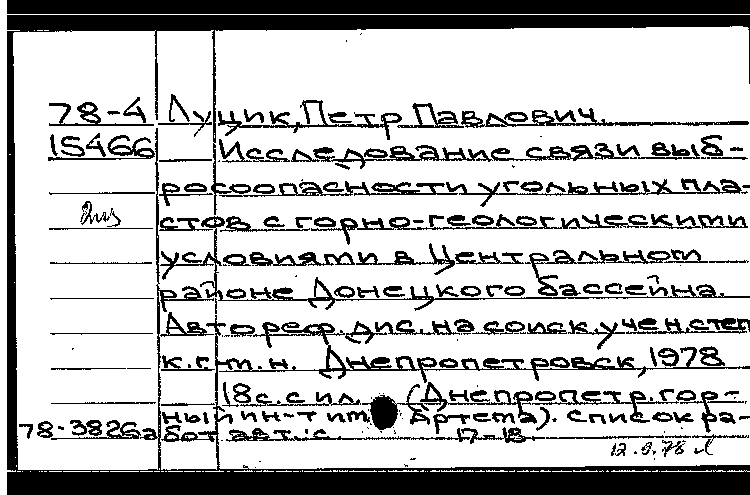 78-4 Луцик, Петр Павлович.
15466 Исследование связи выб-
росоопасности угольных пла-
2из стов с горно-геологическими
условиями в Центральном
районе Донецкого бассейна.
Автореф. дис. на соиск. учен. степ
к.г-м.н. Днепропетровск, 1978
18с. с ил. (Днепропетр. гор-
ный ин-т им Артема). Список ра-
78-3826а бот авт.: с. 17-18.
12.9.78